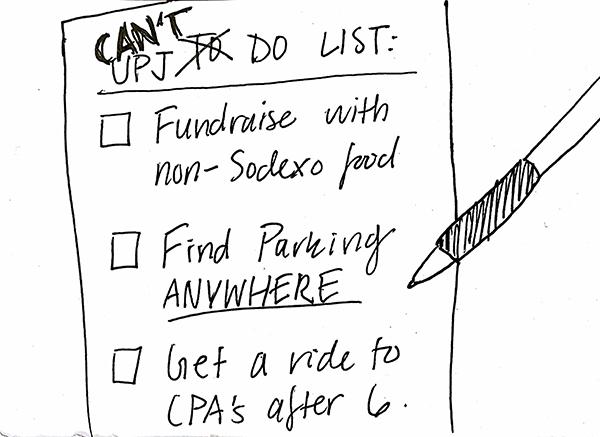 CAN'T
UPJ TO DO LIST:
Fundraise with
non-Sodexo food
Find Parking
ANYWHERE
Get a ride to
CPA's after 6.